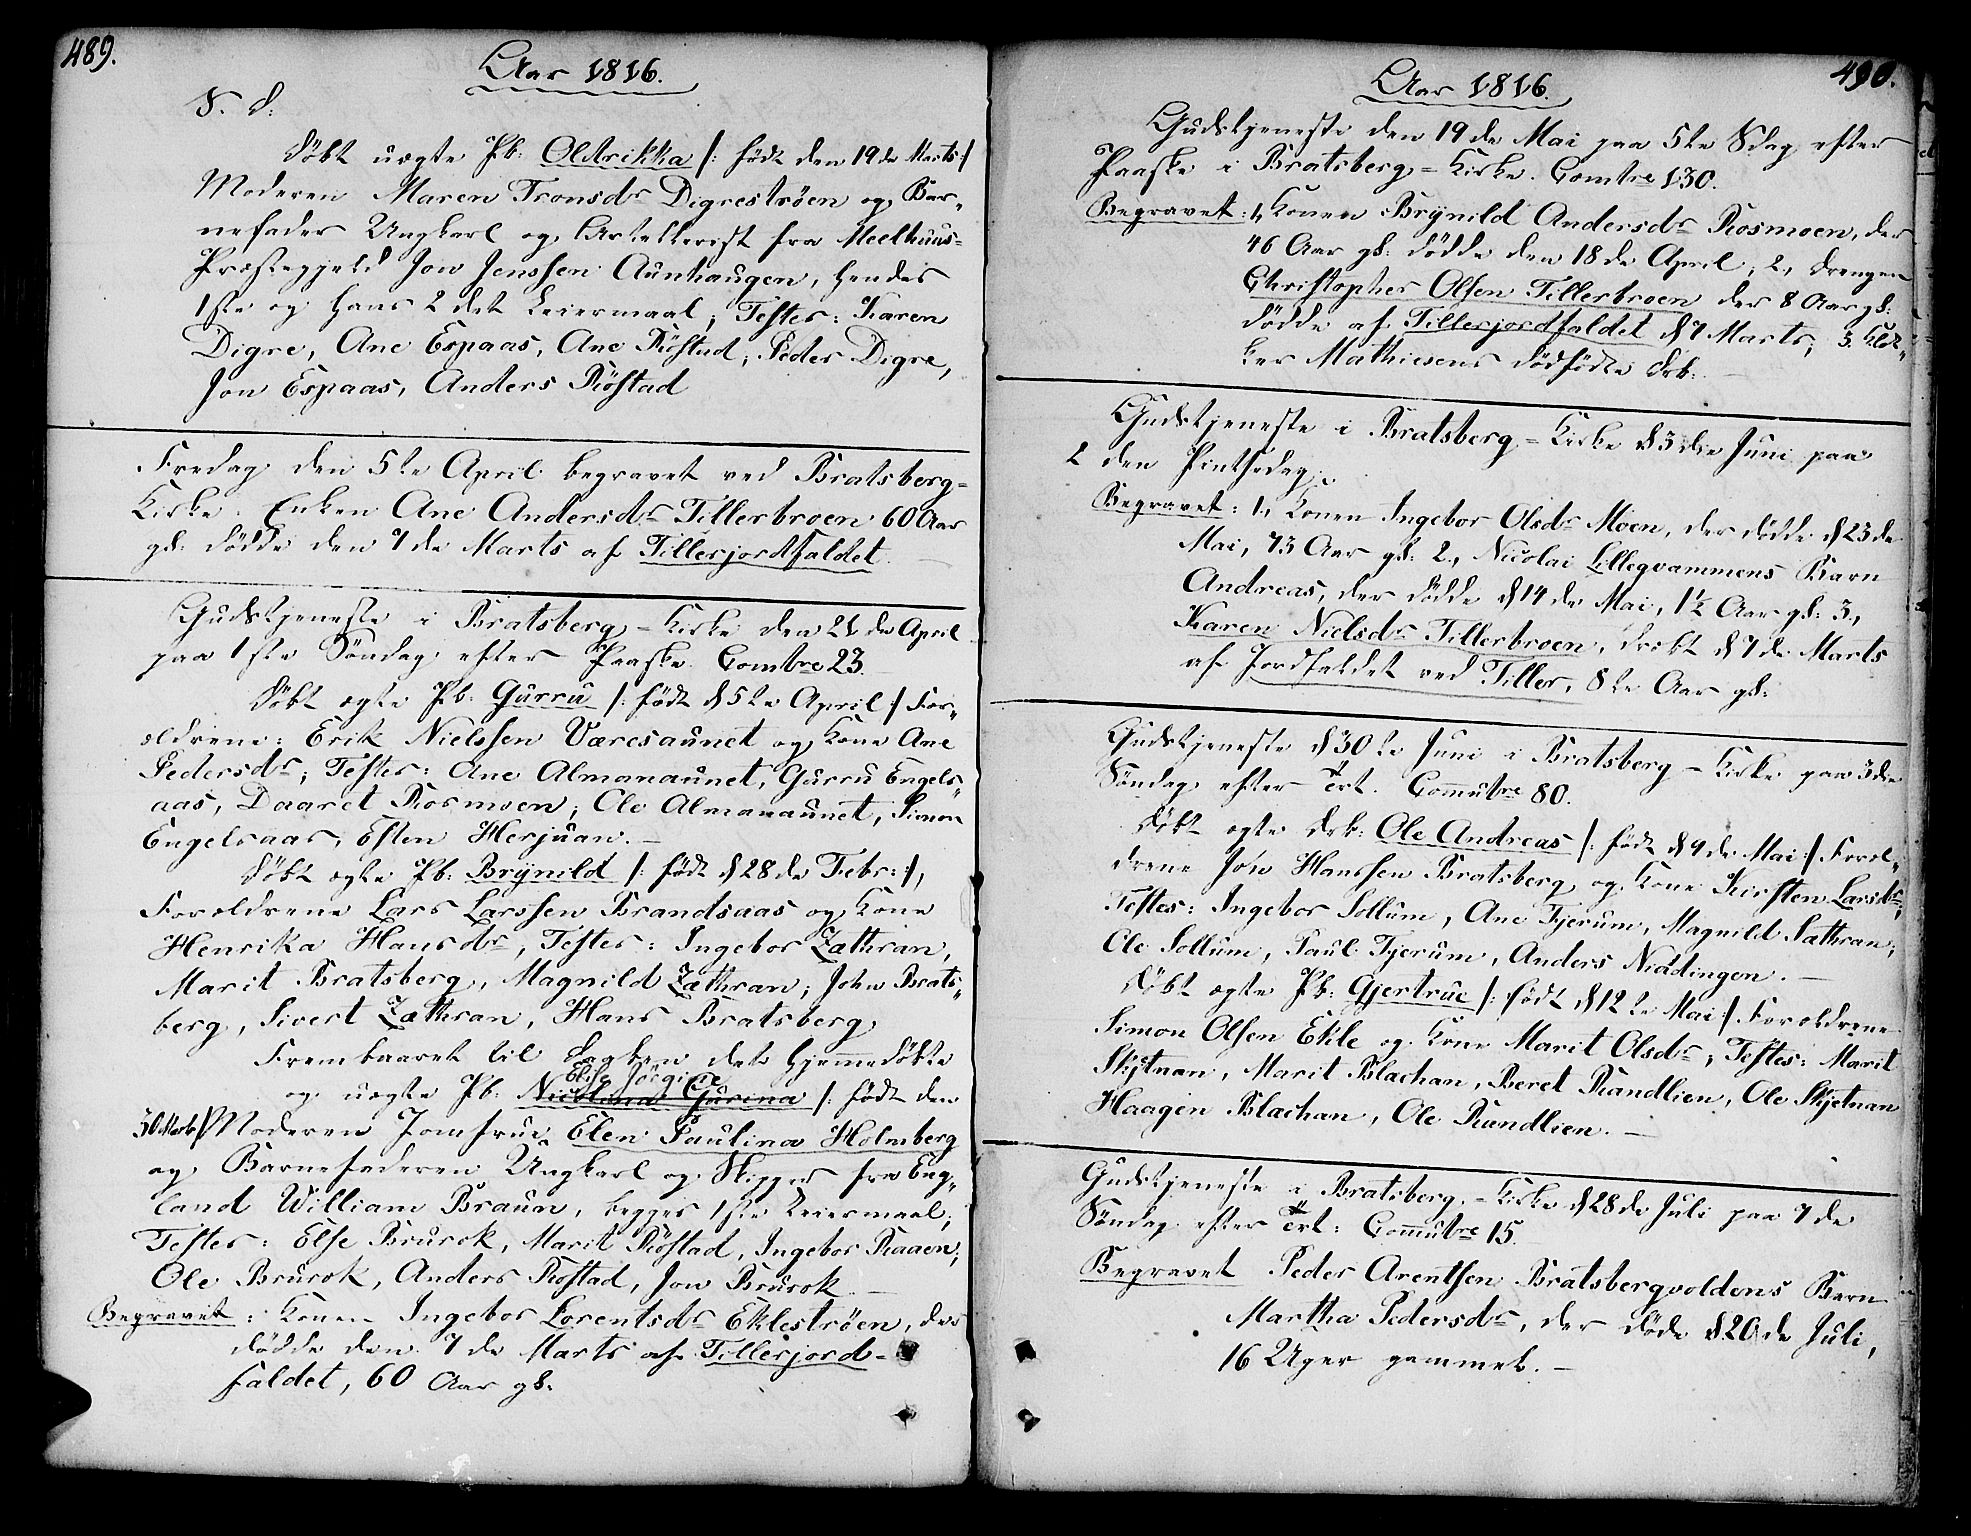 489.
Aar 1816.
S. d:
Döbt uægte Pb: Oldrikka /: födt den 19de Marts :/
Moderen Maren Tronsdr Digreströen og Bar-
nefader Ungkarl og Artellerist fra Meelhuus-
Præstegjeld Jon Jenssen Aunhaugen, hendes
1ste og hans 2det Leiermaal; Testes: Karen
Digre, Ane Espaas, Ane Röstad; Peder Digre,
Jon Espaas, Anders Röstad
Fredag den 5te April begravet ved Bratsberg-
Kirke: Enken Ane Andersdr Tillerbroen 60 Aar
gl: dödde den 7de Marts af Tillerjordfaldet.
Gudstjeneste i Bratsberg-Kirke den 21de April
paa 1ste Söndag efter Paaske. Comtre 23.
Döbt ægte Pb: Gurru /: födt d 5te April :/ For-
ældrene: Erik Nielssen Væresaunet og Kone Ane
Pedersdr; Testes: Ane Almanaunet, Gurru Engels-
aas, Daaret Rosmoen; Ole Almanaunet, Simon
Engelsaas, Esten Herjuan.
Döbt ægte Pb: Brÿnild /: födt d 28de Febr: :/,
Forældrene Lars Larssen Brandsaas og Kone
Henrika Hansdr, Testes: Ingebor Zæthran,
Marit Bratsberg, Magnild Zæthran; John Brats-
berg, Sivert Zæthran, Hans Bratsberg
Frembaaret til Daaben det hjemmedöbte
Elise Jörgine
og uægte Pb: Nicolina Gurina /: födt den
30 Marts :/ Moderen Jomfrue Elen Paulina Holmberg
og Barnefaderen Ungkarl og Skipper fra Eng-
land William Braun, begges 1ste Leiermaal;
Testes: Else Brurok, Marit Röstad, Ingebor Raaen;
Ole Brurok, Anders Röstad, Jon Brurok
Begravet: Konen Ingebor Lorentsdr Ekleströen, der
dödde den 7de Marts af Tillerjord-
faldet, 60 Aar gl:
490.
Aar 1816.
Gudstjeneste den 19de Mai paa 5te Sdag efter
Paaske i Bratsberg-Kirke. Comtre 130.
Begravet: 1, Konen Brÿnild Andersdr Rosmoen, der
46 Aar gl: dödde den 18de April; 2, Drengen
Christopher Olsen Tillerbroen der 8 Aar gl:
dödde af Tillerjordfaldet d 7 Marts; 3. Klok-
ker Mathiesens dödfödte Drb:
Gudstjeneste i Bratsberg-Kirke d 3die Juni paa
2den Pintsedag.
Begravet: 1, Konen Ingebor Olsdr Moen, der dödde d 23de
Mai, 73 Aar gl: 2, Nicolai Lillegvammens Barn
Andreas, der dödde d 14de Mai, 1½ Aar gl: 3,
Karen Nielsdr Tillerbroen, dræbt d 7de Marts
af Jordfaldet ved Tiller, 8te Aar gl:
Gudstjeneste d 30te Juni i Bratsberg-Kirke paa 3die
Söndag efter Trt. Commtre 80.
Döbt ægte Drb: Ole Andreas /: födt d 9de Mai :/ Foræl-
drene Jon Hanssen Bratsberg og Kone Kirsten Larsdr;
Testes: Ingebor Sollum, Ane Tjerum, Magnild Sæthran;
Ole Sollum, Paul Tjerum, Anders Niddingen.
Döbt ægte Pb: Gjertrue /: födt d 12te Mai :/ Forældrene
Simon Olsen Ekle og Kone Marit Olsdr; Testes: Marit
Skjetnan, Marit Blachan, Beret Randlien, Ole Skjetnan
Haagen Blachan, Ole Randlien.
Gudstjeneste i Bratsberg-Kirke d 28de Juli paa 7de
Söndag efter Trt: Commtre 15.
Begravet Peder Arentsen Bratsbergvoldens Barn
Martha Pedersdr, der döde d 20de Juli,
16 Uger gammel.